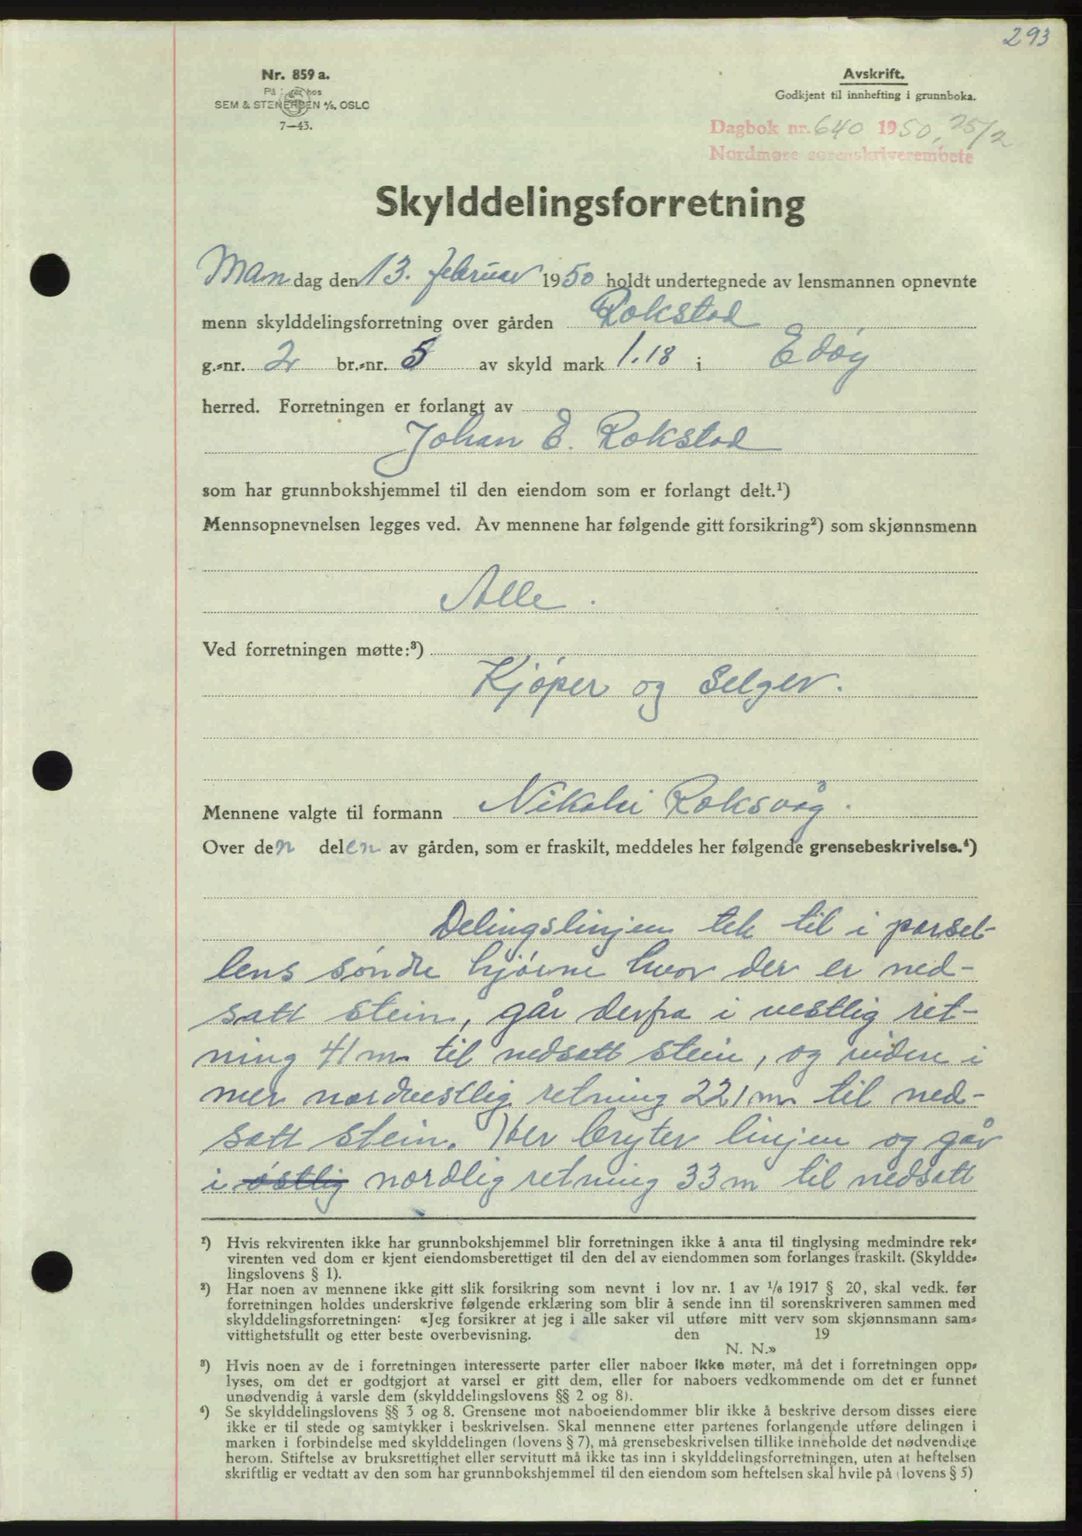 293
Nr. 859 a.
På lager hos
SEM & STENERSEN A/S, OSLO
7—43.
Avskrift.
Godkjent til innhefting i grunnboka.
Dagbok nr. 640 1950, 25/2
Nordmøre sorenskriverembete
Skylddelingsforretning
Mandag den 13. februar 1950 holdt undertegnede av lensmannen opnevnte
menn skylddelingsforretning over gården Rokstad
g.-nr. 2 br.-nr. 5 av skyld mark 1.18 i Edøy
herred. Forretningen er forlangt av
Johan E. Rokstad
som har grunnbokshjemmel til den eiendom som er forlangt delt.¹)
Mennsopnevnelsen legges ved. Av mennene har følgende gitt forsikring²) som skjønnsmenn
Alle.
Ved forretningen møtte:³)
Kjøper og Selger.
Mennene valgte til formann Nikolai Roksvåg.
Over den delen av gården, som er fraskilt, meddeles her følgende grensebeskrivelse.⁴)
Delingslinjen tek til i parsel-
lens søndre hjørne hvor der er ned-
satt stein, går derfra i vestlig ret-
ning 41 m til nedsatt stein, og videre i
mer nordvestlig retning 221 m til ned-
satt stein. Her bryter linjen og går
i østlig nordlig retning 33 m til nedsatt
¹) Hvis rekvirenten ikke har grunnbokshjemmel blir forretningen ikke å anta til tinglysing medmindre rek-
virenten ved dom er kjent eiendomsberettiget til den del av eiendommen som forlanges fraskilt. (Skyldde-
lingslovens § 1).
²) Har noen av mennene ikke gitt slik forsikring som nevnt i lov nr. 1 av ¹/₆ 1917 § 20, skal vedk. før
forretningen holdes underskrive følgende erklæring som blir å sende inn til sorenskriveren sammen med
skylddelingsforretningen: «Jeg forsikrer at jeg i alle saker vil utføre mitt verv som skjønnsmann sam-
vittighetsfullt og etter beste overbevisning. den 19
N. N.»
³) Hvis noen av de i forretningen interesserte parter eller naboer ikke møter, må det i forretningen opp-
lyses, om det er godtgjort at varsel er gitt dem, eller for naboers vedkommende om det er funnet
unødvendig å varsle dem (skylddelingslovens §§ 2 og 8).
⁴) Se skylddelingslovens §§ 3 og 8. Grensene mot naboeiendommer blir ikke å beskrive dersom disses eiere
ikke er til stede og samtykker i beskrivelsen. Skal mennene etter partenes forlangende utføre delingen i
marken i forbindelse med skylddelingen (lovens § 7), må grensebeskrivelsen tillike inneholde det nødvendige
herom. Stiftelse av bruksrettighet eller servitutt må ikke tas inn i skylddelingsforretningen, uten at heftelsen
skriftlig er vedtatt av den som har grunnbokshjemmel til den eiendom som heftelsen skal hvile på (lovens § 5)